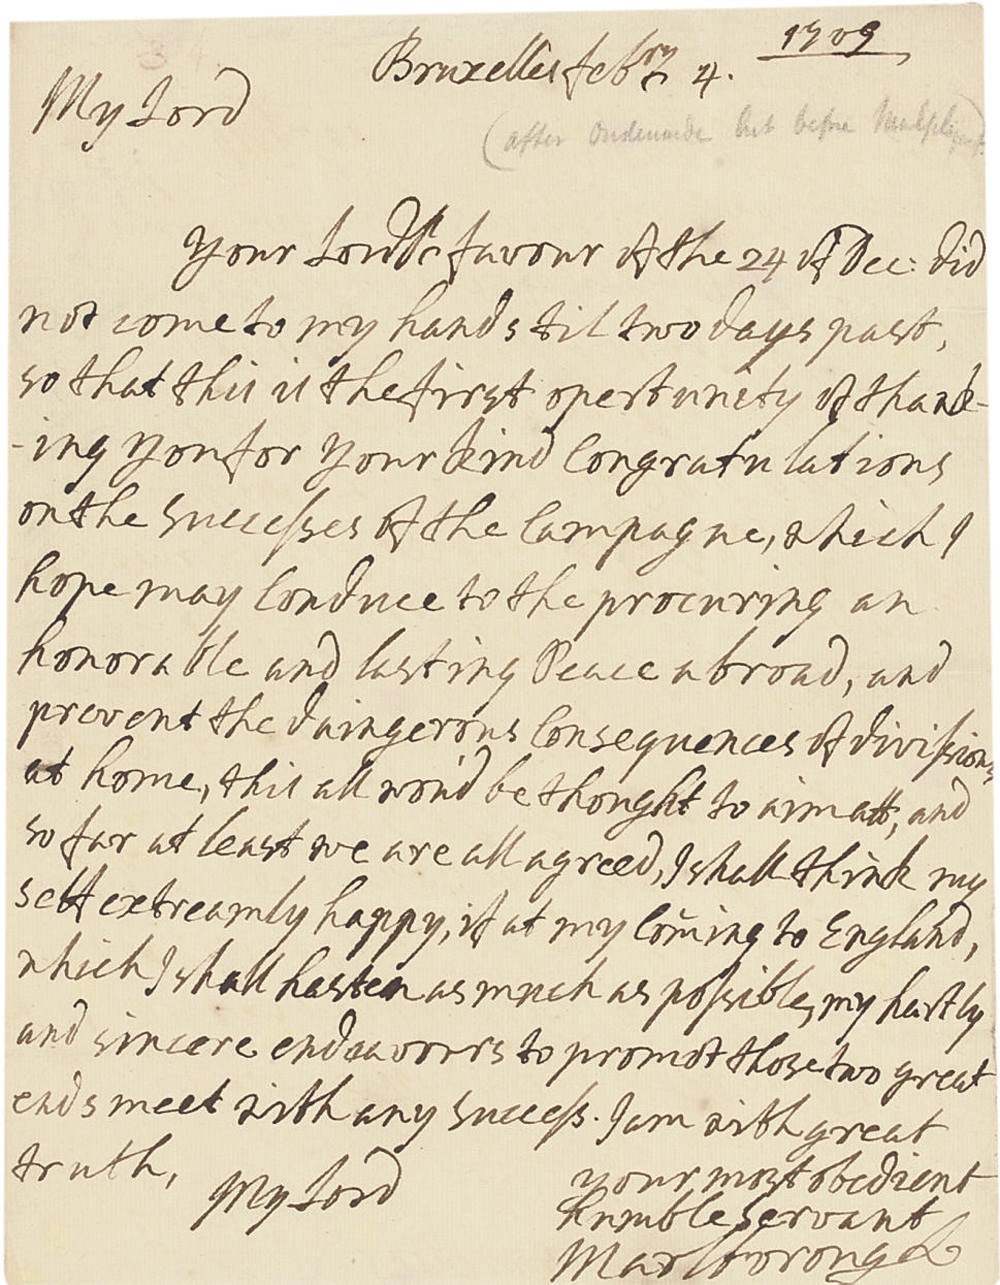 1709
Bruxelles febry 4.
My Lord
(after Oudenarde but before Malplaquet)
Your Lordps favour of the 24 of Dec: did
not come to my hands til two days past,
so that this is the first opertunity of thank-
-ing you for your kind Congratulations
on the successes of the Campagne, which I
hope may conduce to the procuring an
honorable and lasting Peace abroad, and
prevent the daingerous Consequences of divissions
at home, this all wou'd be thought to aim att, and
so far at least we are all agreed, I shall think my
self extreamly happy, if at my Coming to England,
which I shall hasten as much as possible, my hartly
and sincere endeavorrs to promot those two great
ends meet with any success. I am with great
truth,
My Lord
your most obedient
humble servant
Marlborough